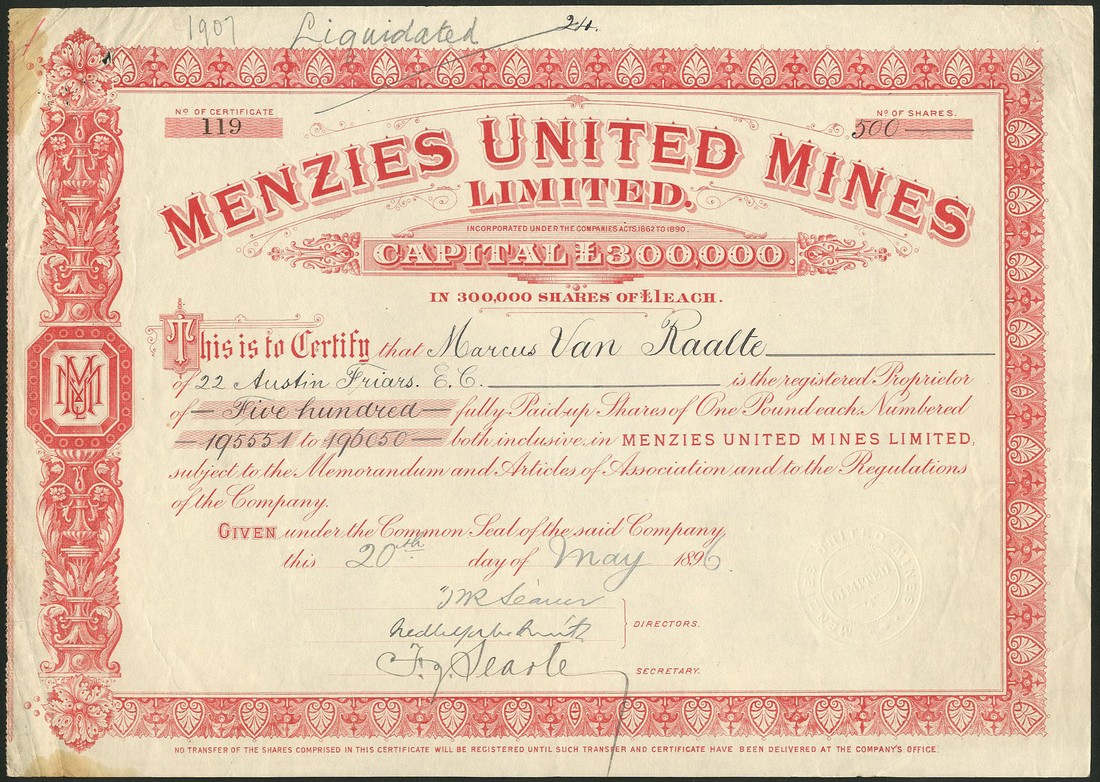 1907 Liquidated 24.
No OF CERTIFICATE
119
No OF SHARES.
500
MENZIES UNITED MINES
LIMITED.
INCORPORATED UNDER THE COMPANIES ACTS, 1862 TO 1890.
CAPITAL £300,000.
IN 300,000 SHARES OF £1 EACH.
This is to Certify that Marcus Van Raalte
of 22 Austin Friars. E.C. is the registered Proprietor
of Five hundred fully Paid up Shares of One Pound each Numbered
195551 to 196050 both inclusive in MENZIES UNITED MINES LIMITED,
subject to the Memorandum and Articles of Association and to the Regulations
of the Company.
GIVEN under the Common Seal of the said Company,
this 20th day of May 1896.
DIRECTORS.
F. J. Searle
SECRETARY.
MENZIES UNITED MINES
LIMITED
NO TRANSFER OF THE SHARES COMPRISED IN THIS CERTIFICATE WILL BE REGISTERED UNTIL SUCH TRANSFER AND CERTIFICATE HAVE BEEN DELIVERED AT THE COMPANY'S OFFICE.